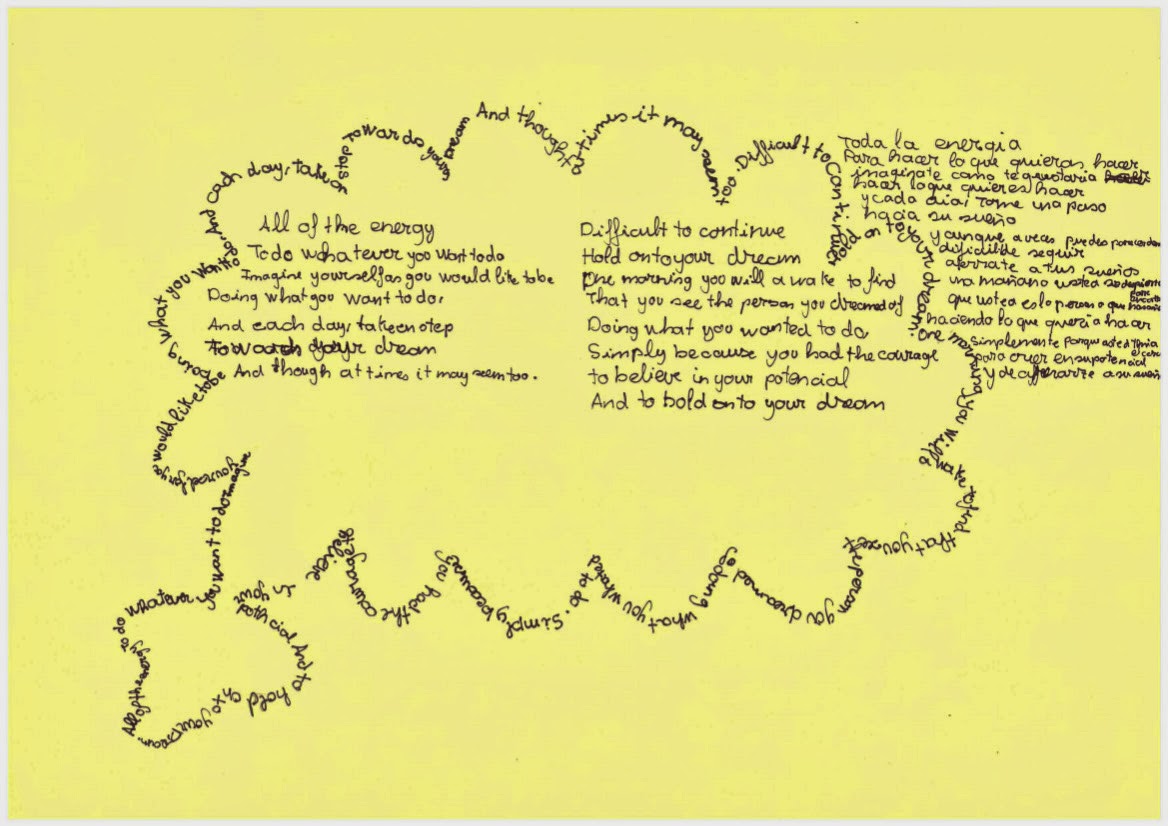 All of the energy
To do whatever you want to do
Imagine yourself as you would like to be
Doing what you want to do,
And each day, take on step
Towards your dream
And though at times it may seem too.
Difficult to continue
Hold onto your dream
One morning you will a wake to find
That you see the person you dreamed of
Doing what you wanted to do
Simply because you had the courage
to believe in your potencial
And to bold onto your dream
Toda la energia
Para hacer lo que quieras hacer
imaginate como te gustaria
hacer lo que quieres hacer
y cada dia, tome una paso
hacia su sueño
y aunque a veces puedes
seguir
aferrate a tus sueños
una mañano usted se
que usted es lo persona que
haciendo lo que queria hacer
simplemente porque usted tenia
para creer en su potencial
y de aferrarze a su sueño
All of the energy to do whatever you want to do imagine yourself as you would like to be Doing what you want to do, And each day, take on step Towards your dream And though at times it may seem too. Difficult to continuer Hold on to your dream. One morning you will a wake to find that you see person you dreamed of doing what you whated to do. Simply because you had the courage to believe in your potencial And to hold onto your dream.